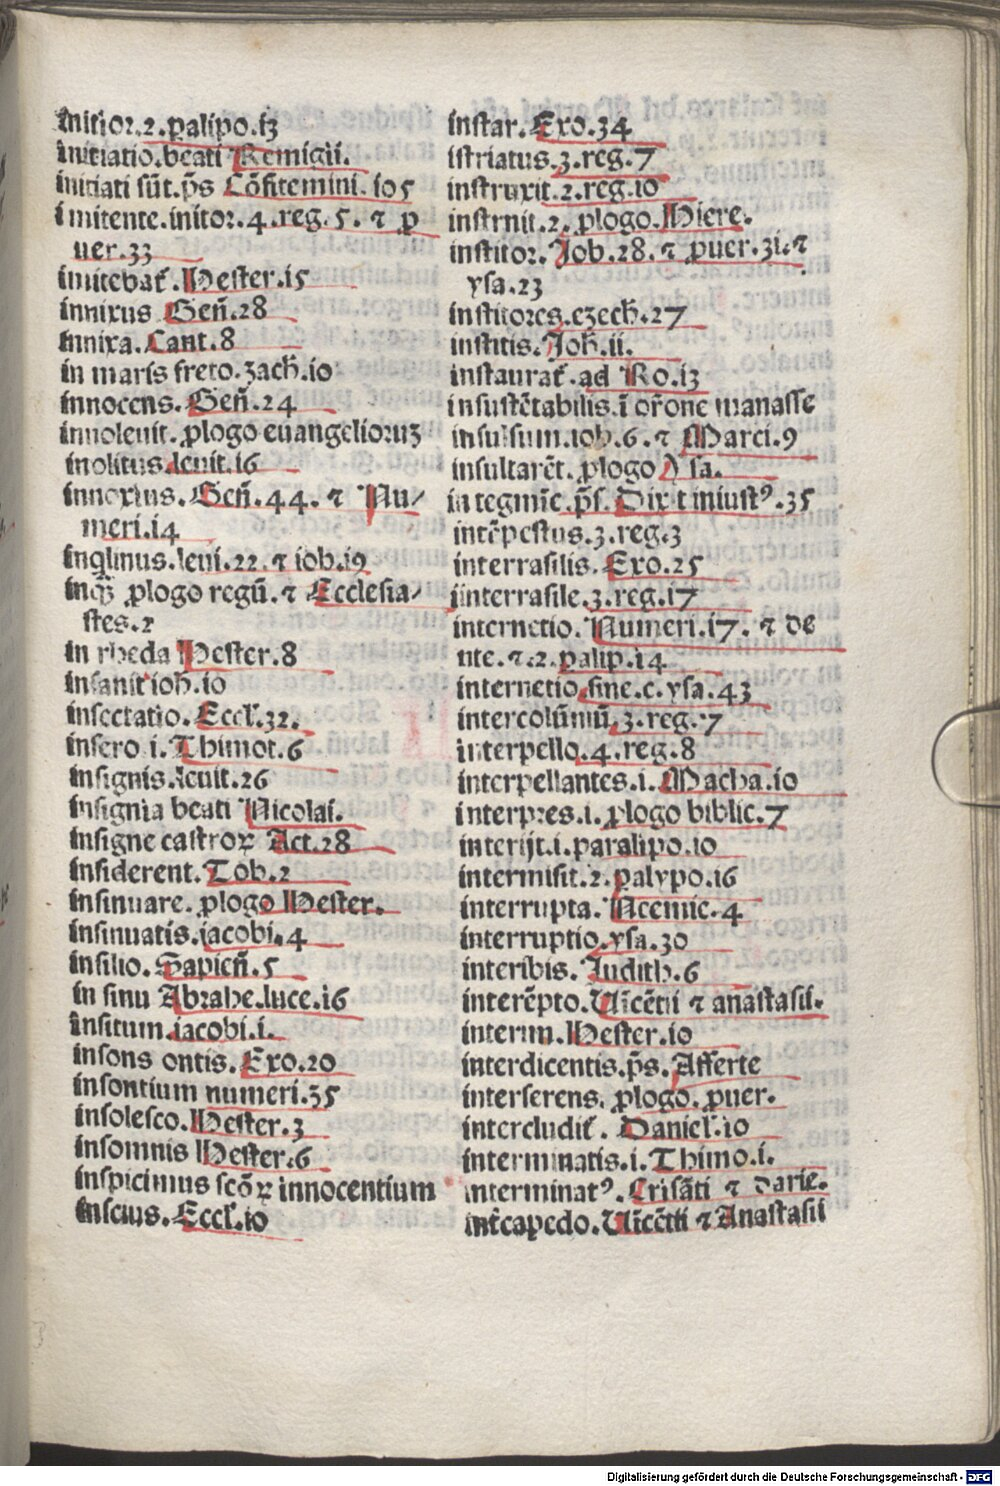 initior.2.palipo.13
initiatio.beati Remigii.
initiati sūt.p̄s Cōfitemini.105
initente.initor.4.reg.5.⁊ ꝓ
uer.33
initebat᷑.Hester.15
innixus Geñ.28
innixa.Cant.8
in maris freto.zach̄.10
innocens.Geñ.24
innoleuit.ꝓlogo euangelioruꝫ
inolitus.leuit.16
innoxius.Geñ.44.⁊ Nu/
meri.14
inqlinus.leui.22.⁊ iob.19
inqͥꝫ ꝓlogo regū.⁊ Ecclesia/
stes.2
in rheda Hester.8
insanit ioh̄.10
insectatio.Eccl̄.32.
insero.1.Thimot.6
insignis.leuit.26
insignia beati Nicolai.
insigne castroꝝ Act.28
insiderent.Tob.2
insinuare.ꝓlogo Hester.
insinuatis.iacobi.4
insilio.Sapieñ.5
in sinu Abrahe.luce.16
insitum.iacobi.1.
insons ontis.Exo.20
insontium numeri.35
insolesco.Hester.3
insomnis Hester.6
inspicimus scōꝝ innocentium
inscius.Eccl̄.10
instar.Exo.34
istriatus.3.reg.7
instruxit.2.reg.10
instruit.2.ꝓlogo.Hiere.
institor.Job.28.⁊ ꝓuer.31.⁊
ysa.23
institores.ezech̄.27
institis.Joh̄.11.
instaurat᷑.ad Ro.13
insustētabilis.ī orōne manasse
insulsum.iob.6.⁊ Marci.9
insultarēt.ꝓlogo Ysa.
in tegmīe.p̄s.Dixit iniustꝰ.35
intēpestus.3.reg.3
interrasilis.Exo.25
interrasile.3.reg.17
internetio.Numeri.17.⁊ de
nte.⁊.2.palip.14
internetio sine.c.ysa.43
intercolūniū.3.reg.7
interpello.4.reg.8
interpellantes.1.Macha.10
interpres.1.ꝓlogo biblie.7
interijt.1.paralipo.10
intermisit.2.palypo.16
interrupta.Neemie.4
interruptio.ysa.30
interibis.Judith.6
interēpto.Uīcētii ⁊ anastasii.
interim.Hester.10
interdicentis.p̄s.Afferte
interserens.ꝓlogo.ꝓuer.
intercludit᷑.Daniel̄.10
interminatis.1.Thimo.1.
interminatꝰ.Crisāti ⁊ darie.
int᷑capedo.Uīcētii ⁊ Anastasii
Digitalisierung gefördert durch die Deutsche Forschungsgemeinschaft - DFG